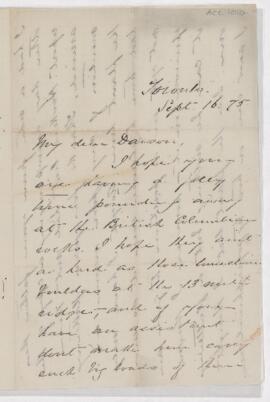 Toronto
Sept 16. 75
My dear Dawson,
I hope you
are having a jolly
time pounding away
at the British Columbian
rocks. I hope they aint
as hard as those
boulders at the 13 mile
ridge — and if you
have an assistant
dont make him carry
such big loads of them